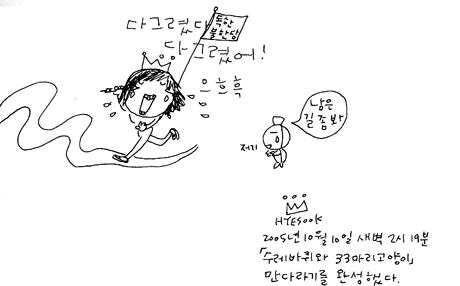 다그렸다
다그렸어!
독한
불한당
으흐흑
남은
길좀봐
저기
HYESOOK
2005년 10월 10일 새벽 2시 19분
「수레바퀴와 33마리고양이」
만다라기를 완성했다.